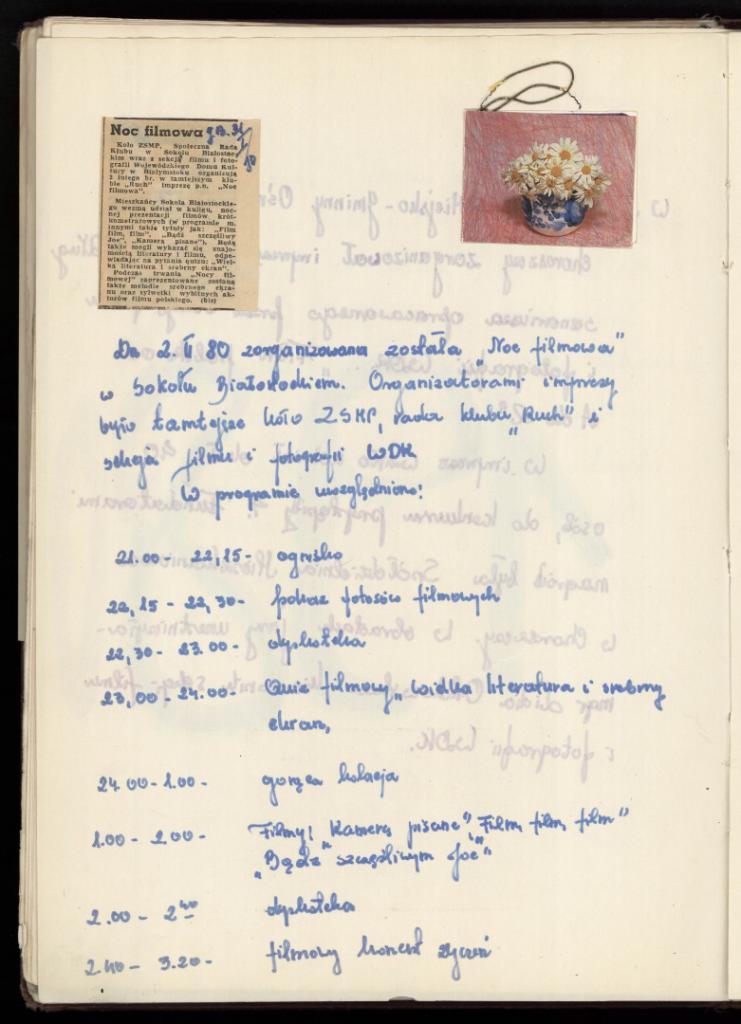 Noc filmowa
Koło ZSMP, Społeczna Rada
Klubu w Sokolu Białostoc-
kim wraz z sekcją filmu i foto-
grafii Wojewódzkiego Domu Kul-
tury w Białymstoku organizują
2 lutego br. w tamtejszym klu-
bie „Ruch” imprezę p.n. „Noc
filmowa”.
Mieszkańcy Sokola Białostockie-
go wezmą udział w kuligu, noc-
nej prezentacji filmów krót-
kometrażowych (w programie m.
innymi takie tytuły jak: „Film
film, film”, „Bądź szczęśliwy
Joe”, „Kamera pisane”). Będą
także mogli wykazać się znajo-
mością literatury i filmu, odpo-
wiadając na pytania quizu: „Wiel-
ka literatura i srebrny ekran”.
Podczas trwania „Nocy fil-
mowej” zaprezentowane zostaną
także melodie srebrnego ekra-
nu oraz sylwetki wybitnych ak-
torów filmu polskiego. (bis)
Dn 2. II 80 zorganizowana została „Noc filmowa”
w Sokolu Białostockiem. Organizatorami imprezy
było tamtejsze koło ZSMP, rada klubu „Ruch” i
sekcja filmu i fotografii WDK
W programie uwzględniono:
21.00 - 22,15 - ognisko
22,15 - 22,30 - pokaz fotosów filmowych
22,30 - 23.00 - dyskoteka
23,00 - 24.00 - Quiz filmowy „Wielka literatura i srebrny
ekran„
24.00 - 1.00 - gorąca kolacja
1.00 - 2.00 - Filmy: „Kamerą pisane”, „Film, film, film”
„Bądź szczęśliwym Joe”
2.00 - 2 40 dyskoteka
2.40 - 3.20 - filmowy koncert życzeń